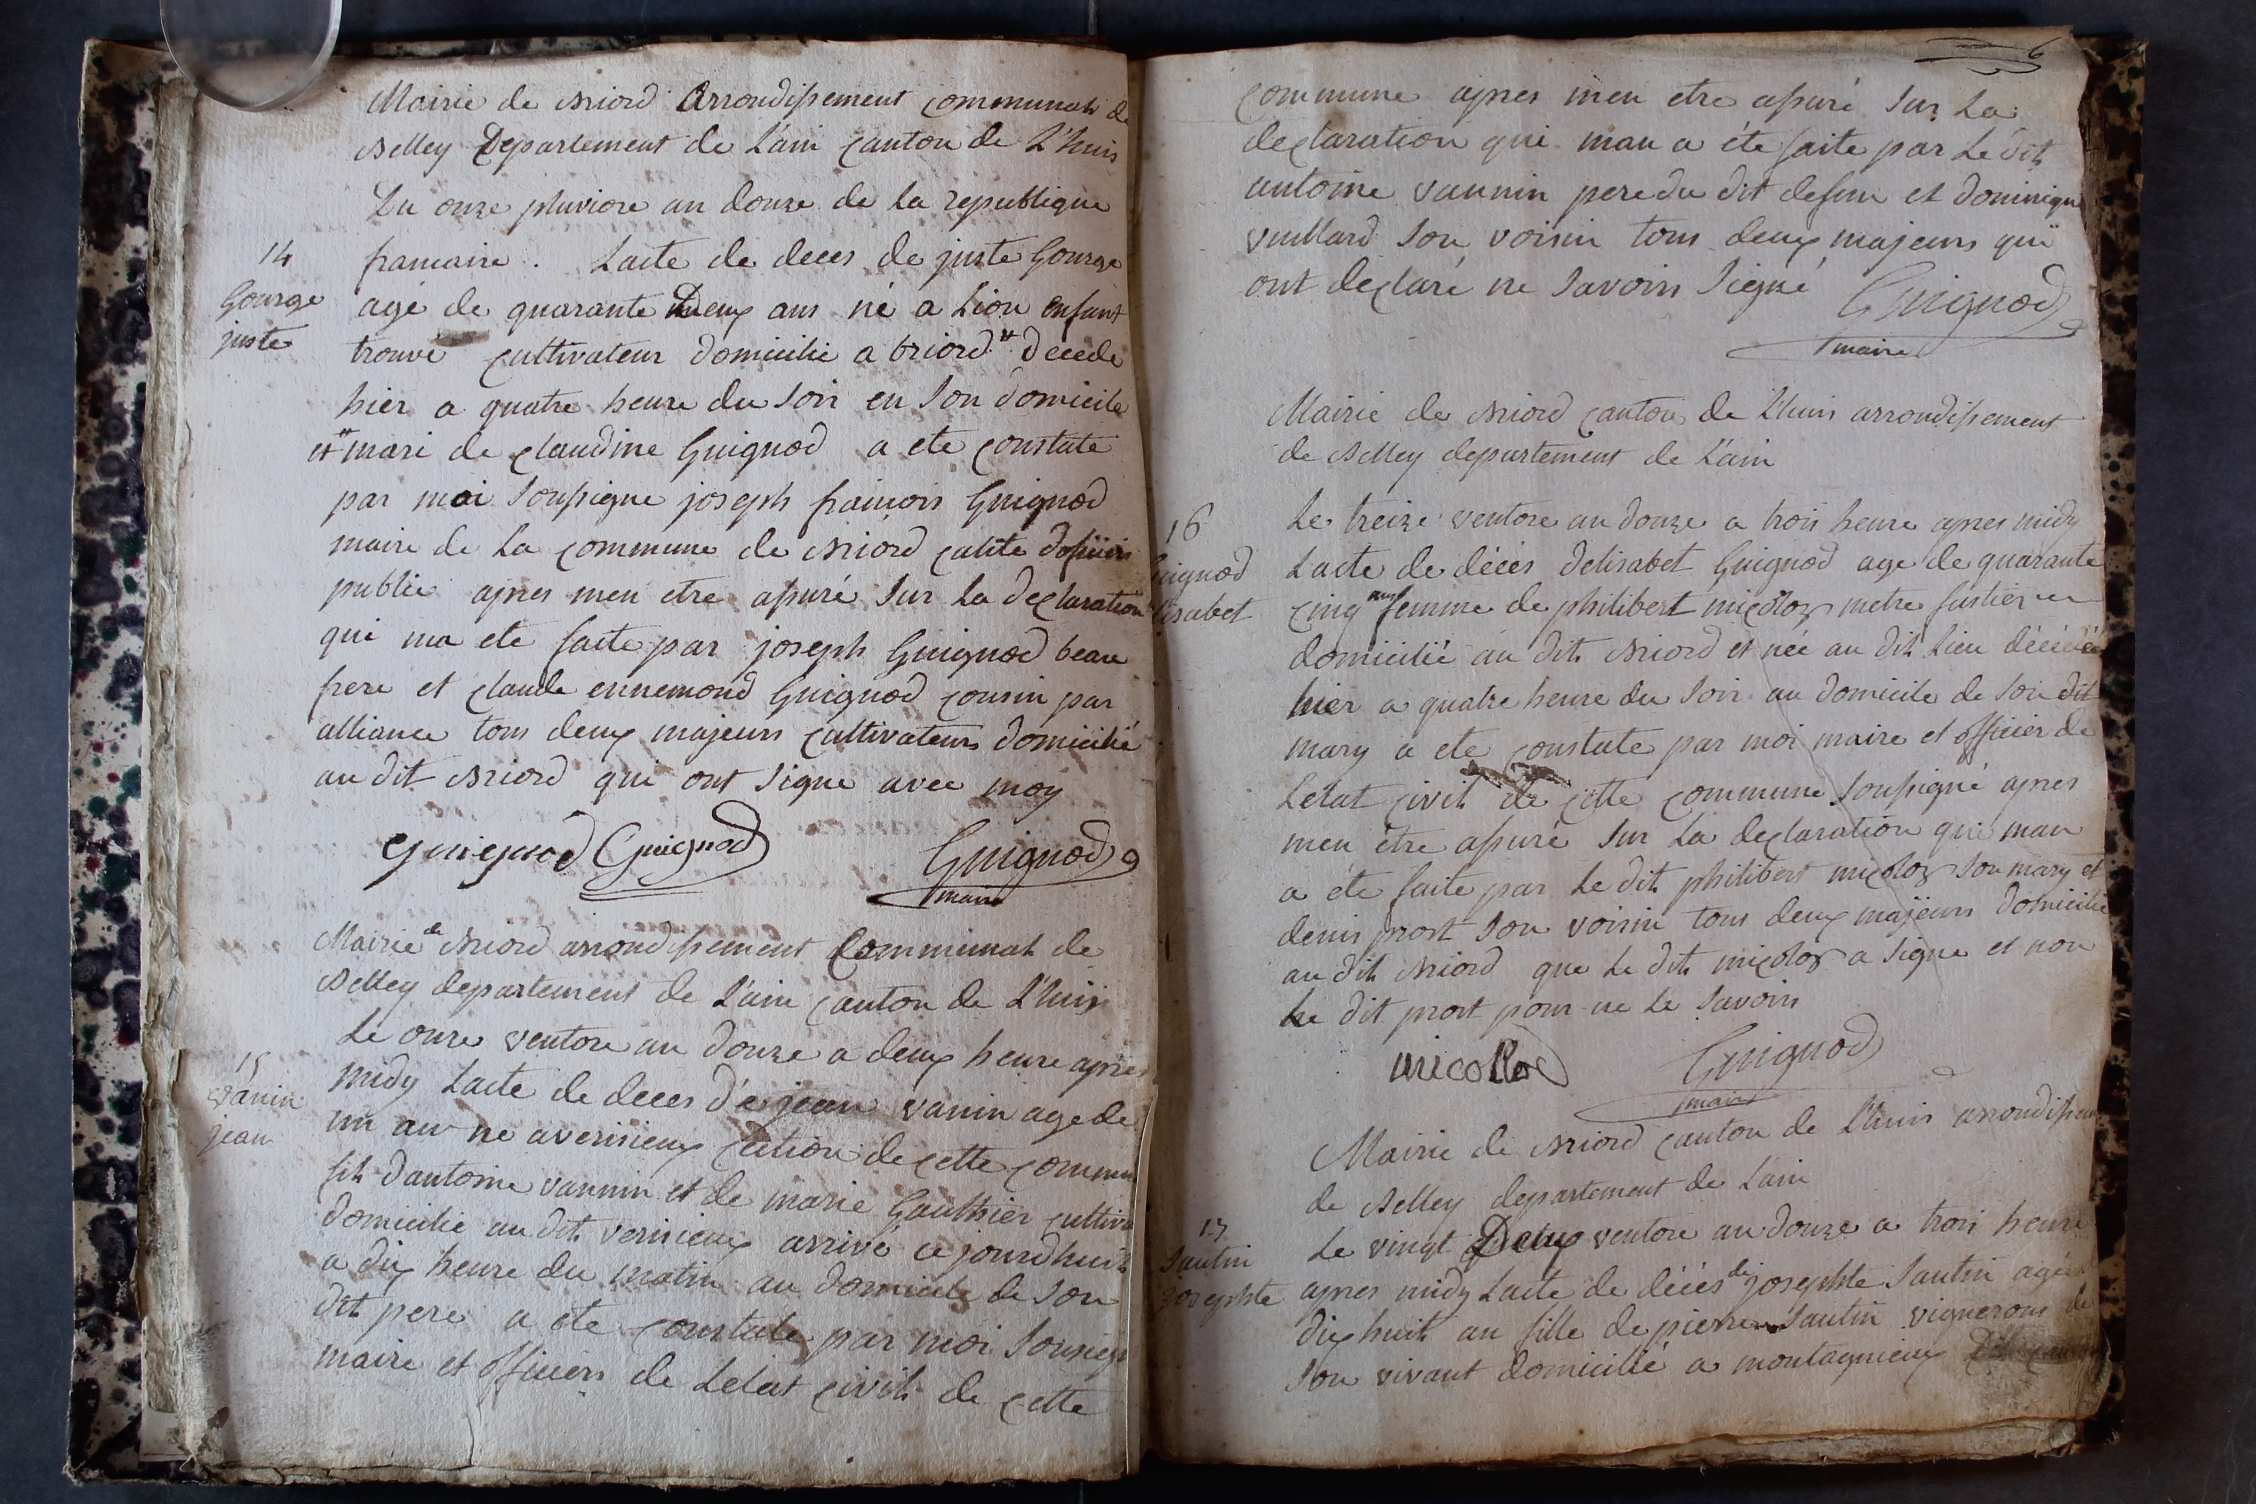 Mairie de Briord Arrondissement communal de
Belley Departement de L'ain canton de L'huis
Du onze pluviose an douze de la republique
14
francaise. Lacte de deces de juste Gourge
Gourge
juste
agé de quarante Deux ans né a Lion enfant
trouvé cultivateur domicilié a briord decede
hier a quatre heure du soir en son domicile
mari de claudine Guignod a ete constate
par moi soussigne joseph francois Guignod
maire de la commune de Briord calite doficier
public apres men etre assuré sur la declaration
qui ma ete faite par joseph Guignod beau
frere et claude ennemond Guignod cousin par
alliance tous deux majeurs cultivateurs domicilié
au dit Briord qui ont signe avec moy
Guignod Guignod Guignod
maire
Mairie de Briord arrondissement Communal de
Belley departement de L'ain canton de L'huis
15
vanin
jean
Le onze ventose an douze a deux heure apres
midy Lacte de deces de jean vanin age de
un an ne a verisieux section de cette commune
fils d'antoine vannin et de marie Gauthier cultiva
domicilié au dit verisieux arrivé ce jourdhuit
a dix heure du matin au domicile de son
dit pere a ete constate par moi soussigne
maire et officiers de Letat civil de cette
6
commune apres men etre assuré sur la
declaration qui man a éte faite par le dit
antoine vannin pere du dit defun et dominique
vuillard son voisin tous deux majeurs qui
ont declaré ne savoir signé
Guignod
maire
Mairie de Briord canton de L'huis arrondissement
de Belley departement de L'ain
16
Guignod
elisabet
Le treize ventose an douze a trois heure apres midy
Lacte de décés delisabet Guignod age de quarante
cinq ans femme de philibert micoloz metre
domicilié au dit Briord et née au dit lieu décédée
hier a quatre heure du soir au domicile de son dit
mary a ete constate par moi maire et officier de
Letat civil de cette commune soussigné apres
men être assuré sur la declaration qui man
a éte faite par le dit philibert micoloz son mary et
denis prost son voisin tous deux majeurs domicilié
au dit Briord que le dit micoloz a signe et non
le dit prost pour ne le savoir
micolloz Guignod
maire
Mairie de Briord canton de L'huis arrondissement
de Belley departement de L'ain
17
Sautin
josephte
Le vingt Deux ventose an douze a trois heure
apres midy Lacte de décés de josephte Sautin agée
dix huit an fille de pierre Sautin vignerons de
son vivant domicilié a montagnieux